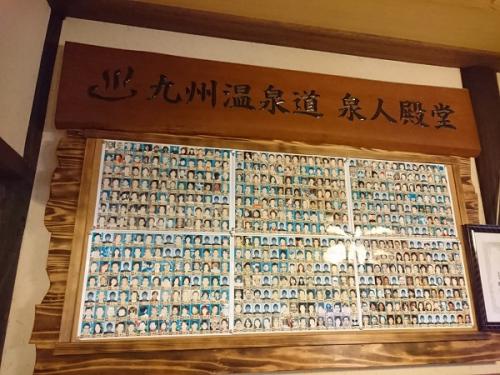 ♨ 九州温泉道 泉人殿堂